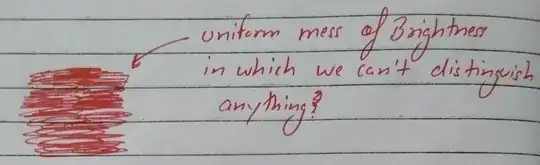 uniform mess of Brightness
in which we can't distinguish
anything?